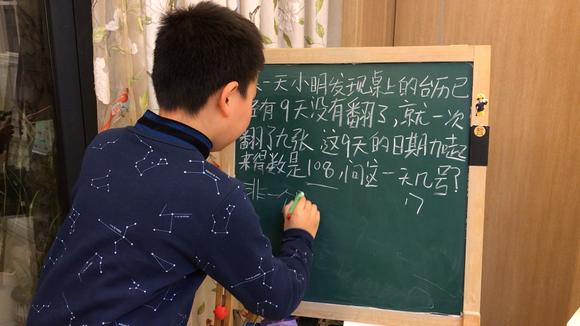 一天小明发现桌上的台历已
经有9天没有翻了,就一次
翻了九张.这9天的日期加起
来得数是108,问这一天几号?
非一个
17